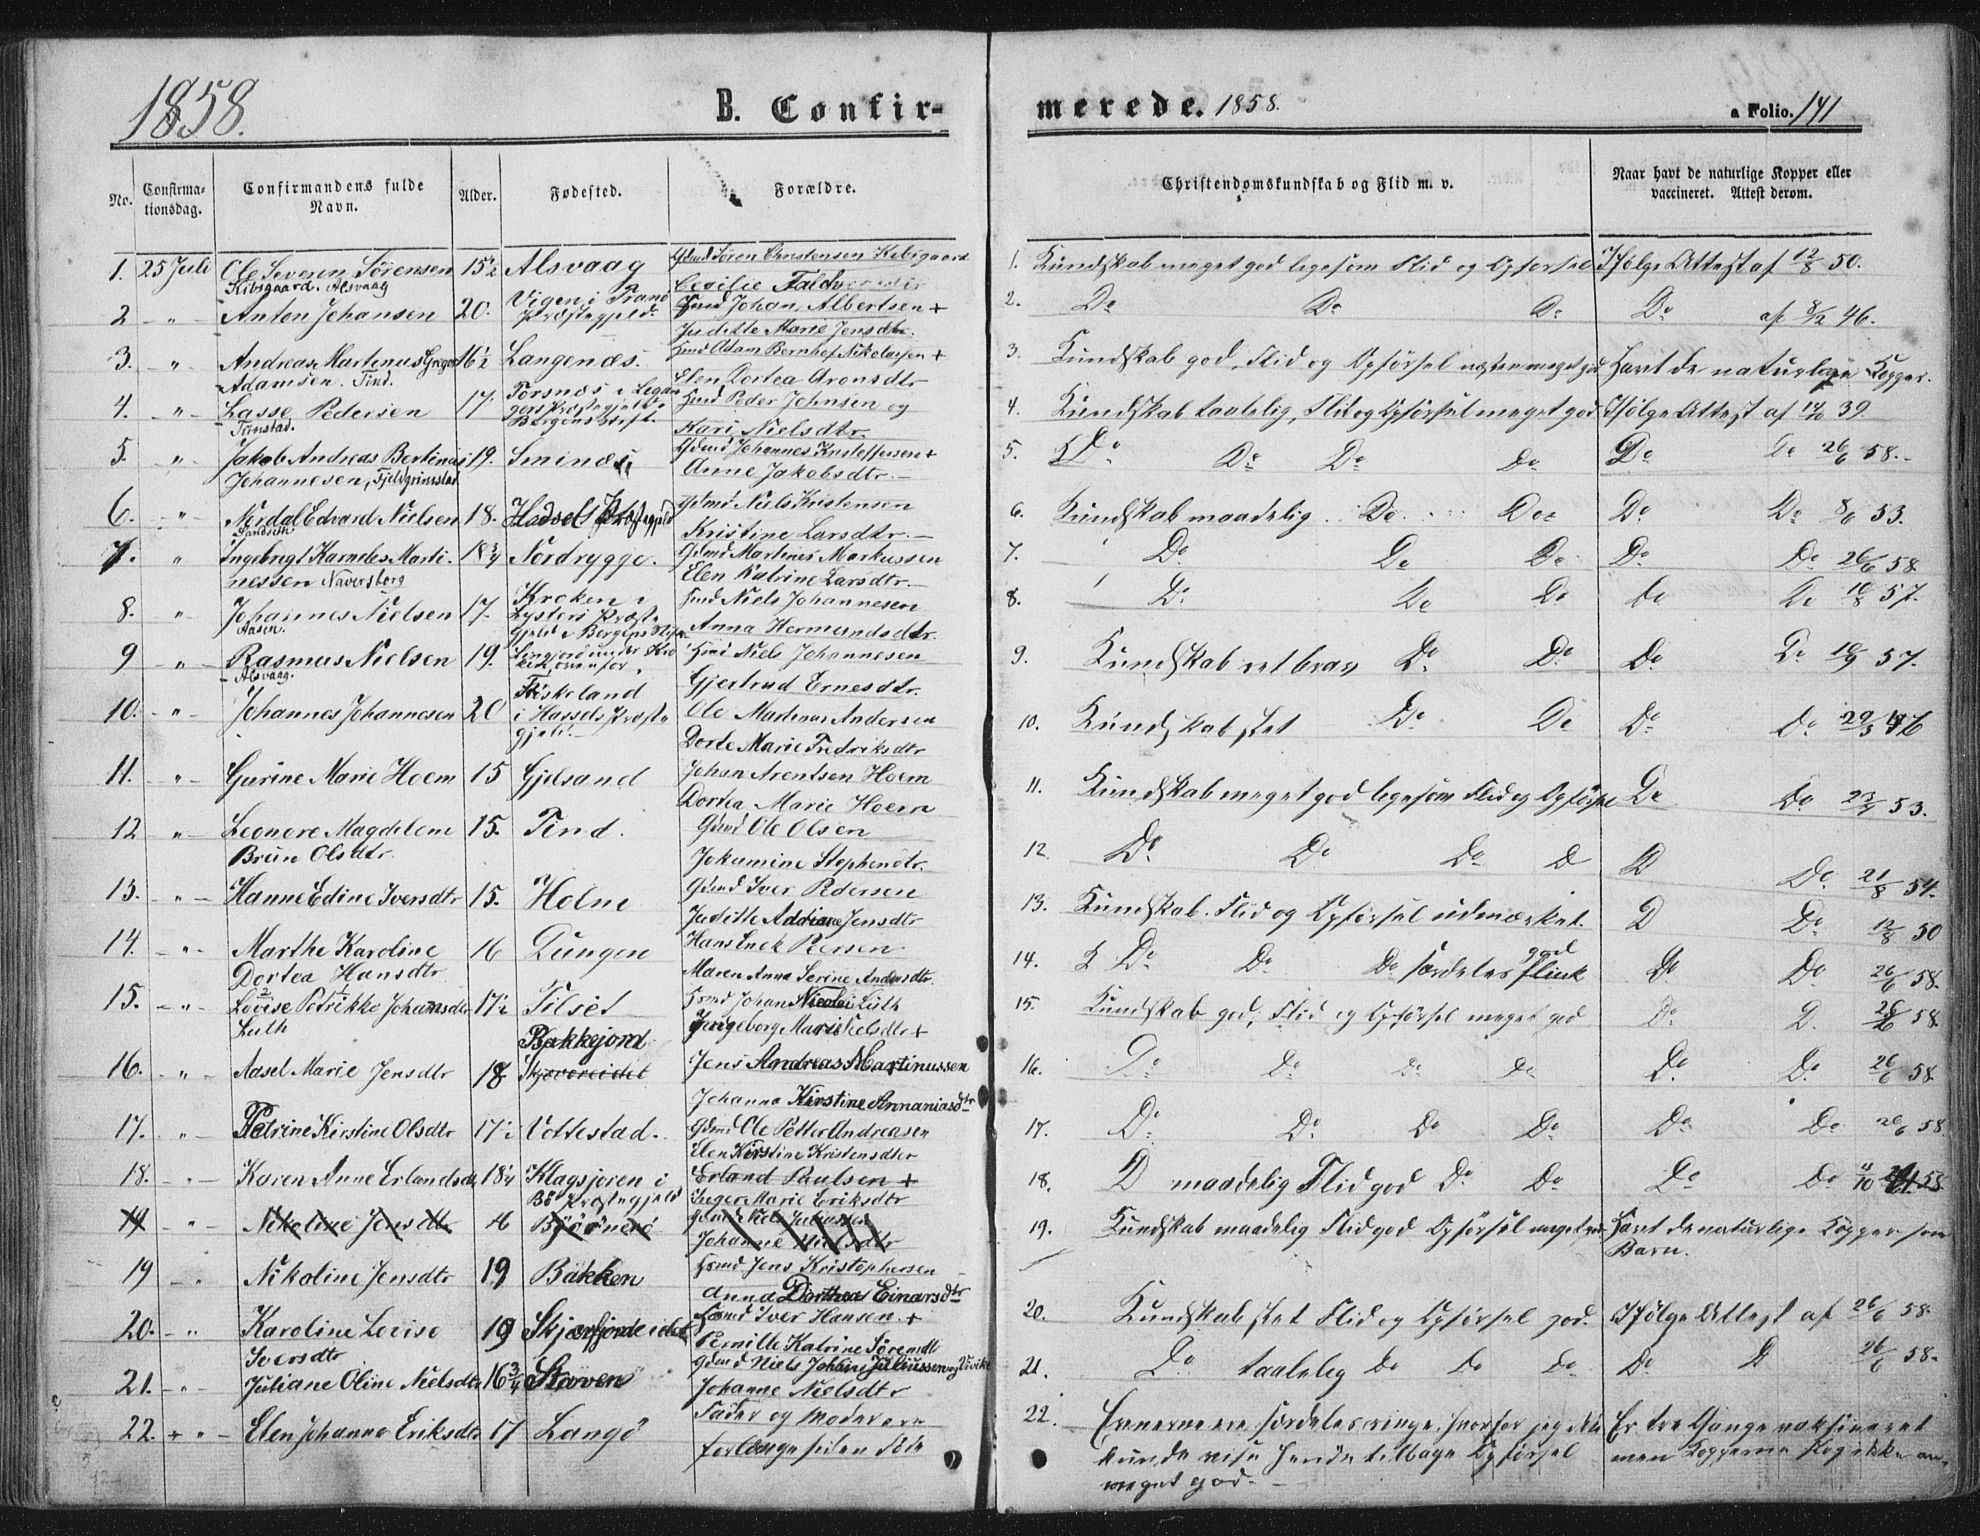 1858.
B. Confir-
No.
Confirma-
tionsdag.
Confirmandens fulde
Navn.
Alder.
Fødested.
Forældre.
1. 25 Juli Ole Severin Sørensen 15½ Alsvaag Gdmd Søren Christensen Kibsgaard
Kibsgaard. Alsvaag Cecilie
2 " Anton Johansen 20. Vigen i Tranö Johan Albertsen +
Præstegjeld. Judithe Marie Jensdtr.
3. " Andreas Martenus 16½ Langenæs. Huusmd Adam Bernhof Nikolaisen +
Adamsen. Tind. Elen Dortea Aronsdtr
4. " Lasse Pedersen 17. Torsnæs i
Huusmd Peder Johnsen og
Tunstad. Bergens Stift. Kari Nielsdtr.
5. " Jakob Andreas Bertinus 19. Sminæs Gdmd Johannes Kristoffersen +
Johannesen, Fjeldgrimstad Anne Jakobsdtr.
6. " Nordal Edvard Nielsen 18. Hadsel Præstegjeld Gdmd Niels Kristensen
Sandvik Kristine Larsdtr.
7. " Ingebrigt Karneles Marti- 18¾ Nordrygge. Gdmd Martines Markussen
nessen Naversberg Elen Katrine Larsdtr.
8. " Johannes Nielsen 17. Kroken i Huusmd Niels Johannesen
Aasen. Lysters Præste
gjeld i Bergens Stift Anna Hermundsdtr.
9 " Rasmus Nielsen 19. Niels Johannesen
Alsvaag. Gjertrud Ernesdtr.
10. " Johannes Johannesen 20 Fiskeland Ole Martinus Andersen
i Hassels Præste
gjeld. Dorte Marie Fredriksdtr
11. " Gurine Marie Hoem 15 Gjelsand Johan Arentsen Hoem
Dortea Marie Hoem
12 " Leonore Magdelene 15. Tind. Gdmd Ole Olsen
Brun Olsdtr. Jokumine Stephensdtr.
13. " Hanne Edine Iversdtr 15. Holm Gdmd Iver Pedersen
Judithe Adriane Jensdtr
14. " Marthe Karoline 16 Dungen Hans Enek Peersen
Dortea Hansdtr Maren Anna Serine Andersdtr
15. " Lovise Petrikke Johansdtr 17½ Tilset Huusmd Johan Nicolai Luth
Luth Ingeborg Marie Nielsdtr +
Bakkejord
16. " Aasel Marie Jensdtr 18 Skjævereidet Jens Andreas Martinussen
Johanna Kirstine Annaniasdtr
17. " Petrine Kirstine Olsdtr 17½ Vottestad. Gdmd Ole Petter Andreasen
Elen Kirstine Kristensdter
18. " Karen Anne Erlandsdtr 18¼ Klagsjoren i Erland Paulsen +
Bö Præstegjeld Inger Marie Eriksdtr
19 " Nikoline Jensdtr 16 Björnerö Gdmd Niels Juliussen
Johanne Nielsdtr
19 " Nikoline Jensdtr 19 Bakken Huusmd Jens Kristophersen
Anna Dorthea Einarsdtr
20. " Karoline Lovise 19 Skjærfjordeidet Huusmd Iver Hansen +
Iversdtr Pernille Katrine Sörensdtr
21. " Juliane Oline Nielsdtr 16¾ Staven Gdmd Niels Johan Juliussen og Utvike
Johanne Nielsdtr
22. " Elen Johanna Eriksdtr 17 Langö Fader og Moder ere
for længe siden döde
merede. 1858.
a Folio. 141
Christendomskundskab og Flid m. v.
Naar havt de naturlige Kopper eller
vaccineret. Attest derom.
1. Kundskab meget god ligesom Flid og Opførsel Ifølge Attest af 12/8 50.
2. Do Do Do Do af 8/12 46.
3. Kundskab god, Flid og Opførsel næsten meget god Havt de naturlige Kopper.
4. Kundskab taalelig, Flid og Opførsel meget god Ifølge Attest af 14/10 39.
5. Do Do Do Do Do Do 26/6 58.
6. Kundskab maadelig. Do Do Do Do 8/6 53.
7. Do Do Do Do Do 26/6 58
8. Do Do Do Do Do 10/8 57.
9. Kundskab ret brav Do Do Do Do 10/9 57.
10. Kundskab slet Do Do Do Do 29/3 46
11. Kundskab meget god ligesom Flid og Opførsel Do Do 23/9 53.
12. Do Do Do D D Do 21/8 54.
13. Kundskab. Flid og Opførsel udmærket. D Do 12/8 50
14. Do Do Do særdeles god Do Do 26/6 58.
flink
15. Kundskab god, Flid og Opførsel meget god Do D. 26/6 58.
16. Do Do Do Do Do Do 26/6 58.
17. Do Do Do Do Do Do 26/6 58
18. D maadelig Flid god Do Do Do Do 4/10
19. Kundskab maadelig Flid god Opførsel meget Havt de naturlige Kopper som
Barn.
20. Kundskab slet Flid og Opførsel god. Ifølge Attest af 26/6 58.
21. Do taalelig Do Do Do Do D 26/6 58.
22. Evnerne ere særdeles ringe, hvorfor jeg ikke Er tre Gange vaksineret
kunde vise hende tilbage Opførsel men Kopperne slog ikke an.
meget god.